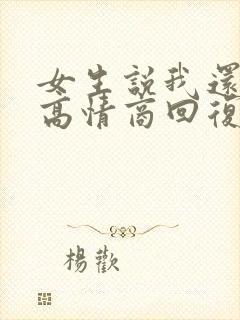 女生説我還
高情商回復
楊歡